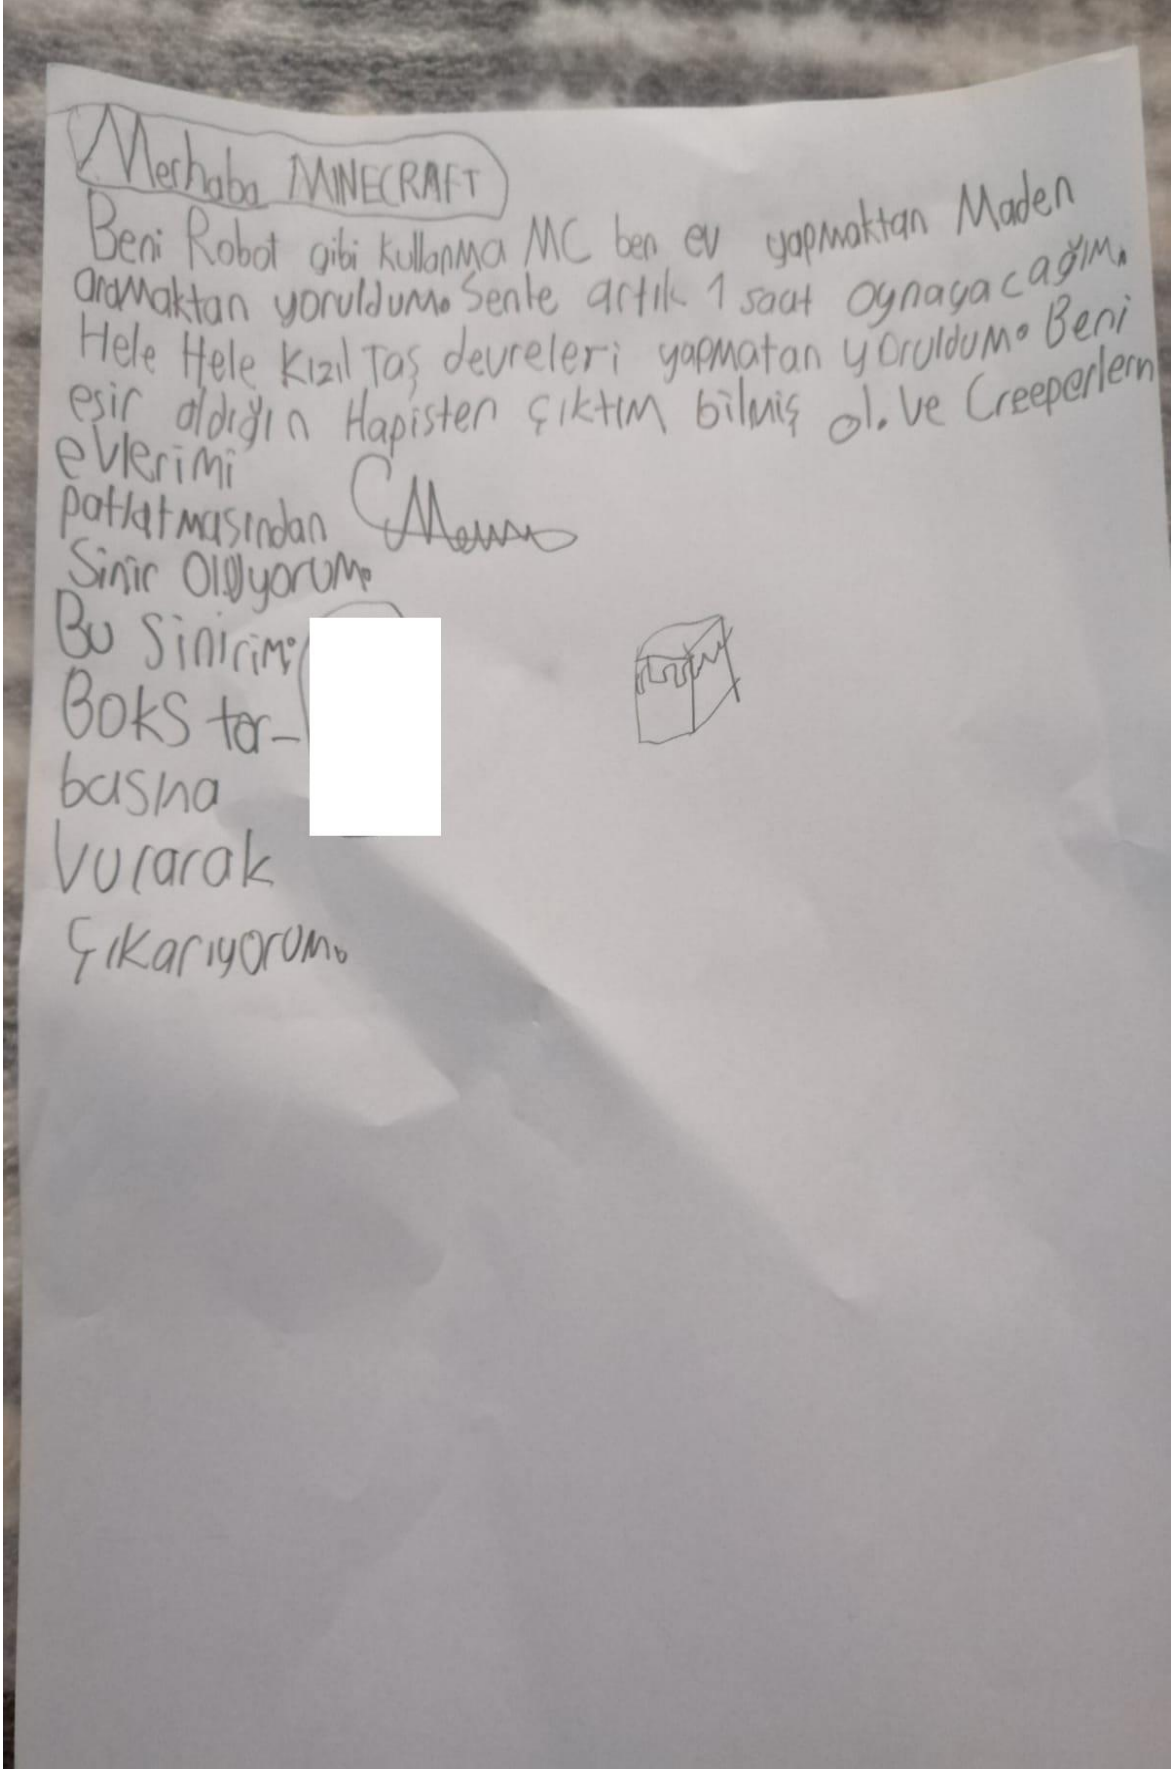 Merhaba MINECRAFT
Beni Robot gibi kullanma MC ben ev yapmaktan Maden
aramaktan yoruldum. Senle artık 1 saat oynayacağım.
Hele Hele Kızıl Taş devreleri yapmatan yoruldum. Beni
esir aldığın Hapisten çıktım bilmiş ol. Ve Creeperlerin
evlerimi
patlatmasından
Sinir Oluyorum.
Bu Sinirimi
Boks tor-
basına
Vurarak
Çıkarıyorum.